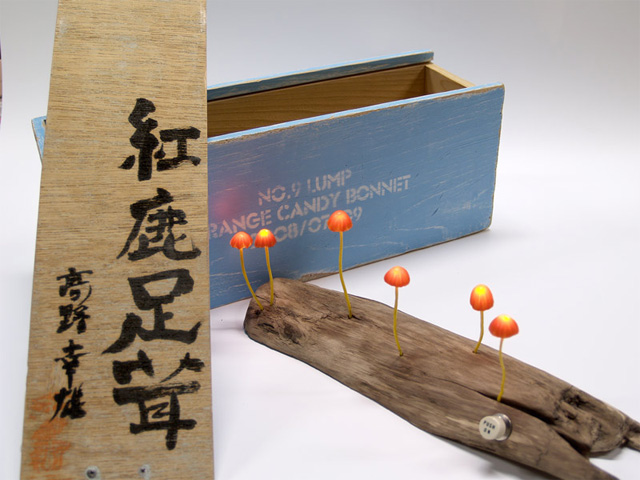 紅鹿足茸
高野幸雄
NO.9 LUMP
RANGE CANDY BONNET
PUSH